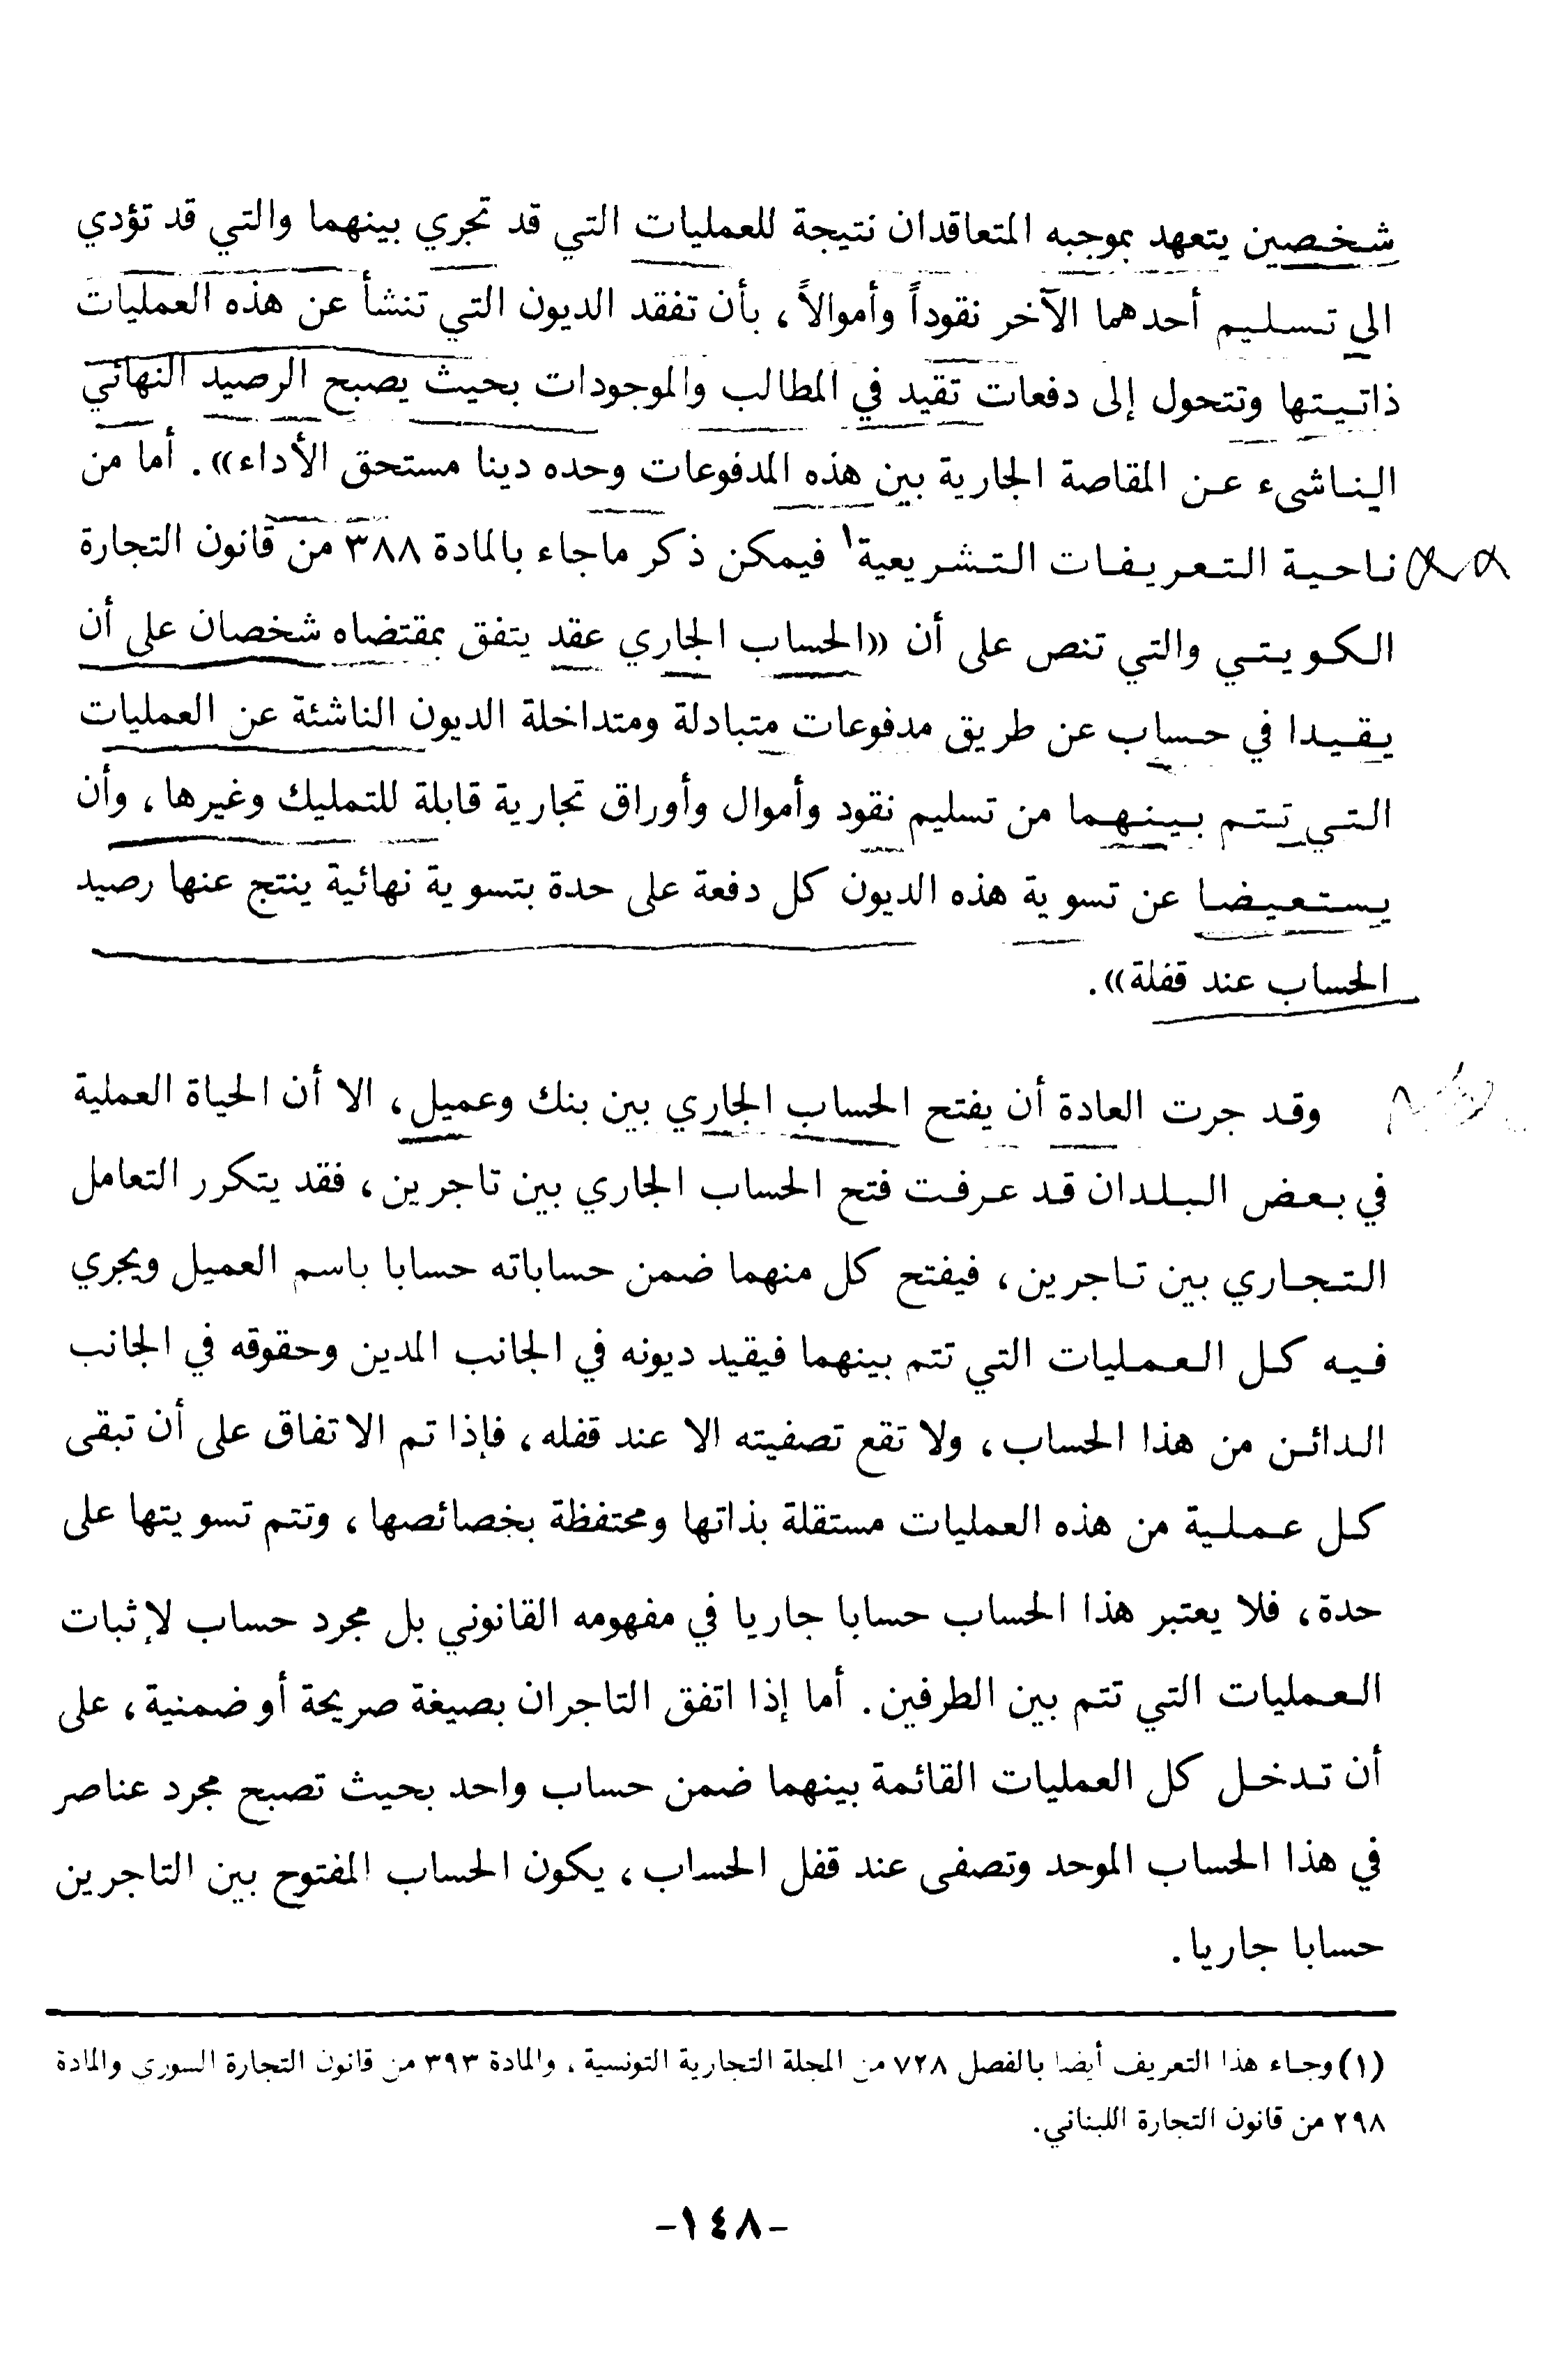 شخصين يتعهد بموجبه المتعاقدان نتيجة للعمليات التي قد تجري بينهما والتي قد تؤدي
الى تسليم أحدهما الآخر نقوداً وأموالاً، بأن تفقد الديون التي تنشأ عن هذه العمليات
ذاتيتها وتتحول إلى دفعات تقيد في المطالب والموجودات بحيث يصبح الرصيد النهائي
الناشىء عن المقاصة الجارية بين هذه المدفوعات وحده دينا مستحق الأداء». أما من
ناحية التعريفات التشريعية١ فيمكن ذكر ماجاء بالمادة ٣٨٨ من قانون التجارة
الكويتي والتي تنص على أن «الحساب الجاري عقد يتفق بمقتضاه شخصان على أن
يقيدا في حساب عن طريق مدفوعات متبادلة ومتداخلة الديون الناشئة عن العمليات
التي تتم بينهما من تسليم نقود وأموال وأوراق تجارية قابلة للتمليك وغيرها، وأن
يستعيضا عن تسوية هذه الديون كل دفعة على حدة بتسوية نهائية ينتج عنها رصيد
الحساب عند قفلة».
وقد جرت العادة أن يفتح الحساب الجاري بين بنك وعميل، الا أن الحياة العملية
في بعض البلدان قد عرفت فتح الحساب الجاري بين تاجرين، فقد يتكرر التعامل
التجاري بين تاجرين، فيفتح كل منهما ضمن حساباته حسابا باسم العميل ويجري
فيه كل العمليات التي تتم بينهما فيقيد ديونه في الجانب المدين وحقوقه في الجانب
الدائن من هذا الحساب، ولا تقع تصفيته الا عند قفله، فإذا تم الاتفاق على أن تبقى
كل عملية من هذه العمليات مستقلة بذاتها ومحتفظة بخصائصها، وتتم تسويتها على
حدة، فلا يعتبر هذا الحساب حسابا جاريا في مفهومه القانوني بل مجرد حساب لإثبات
العمليات التي تتم بين الطرفين. أما إذا اتفق التاجران بصيغة صريحة أو ضمنية، على
أن تدخل كل العمليات القائمة بينهما ضمن حساب واحد بحيث تصبح مجرد عناصر
في هذا الحساب الموحد وتصفى عند قفل الحساب، يكون الحساب المفتوح بين التاجرين
حسابا جاريا.
(١) وجاء هذا التعريف أيضا بالفصل ٧٢٨ من المجلة التجارية التونسية، والمادة ٣٩٣ من قانون التجارة السوري والمادة
٢٩٨ من قانون التجارة اللبناني.
-١٤٨-